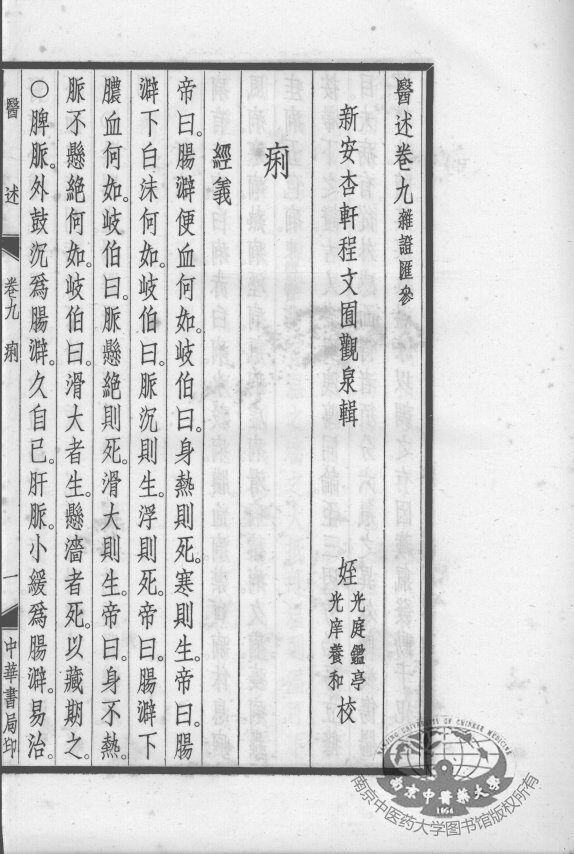 醫述卷九雜證匯參
新安杏軒程文囿觀泉輯 姪光庭鑑亭光庠養和校
痢
經義
帝曰。腸澼便血何如。岐伯曰。身熱則死。寒則生。帝曰。腸
澼下白沬何如。岐伯曰。脈沉則生。浮則死。帝曰。腸澼下
膿血何如。岐伯曰。脈懸絕則死。滑大則生。帝曰。身不熱。
脈不懸絕何如。岐伯曰。滑大者生。懸濇者死。以藏期之。
○脾脈。外鼓沉爲腸澼。久自已。肝脈。小緩爲腸澼。易治。
醫述 卷九 痢 一 中華書局印
NANJING UNIVERSITY OF CHINESE MEDICINE
南京中醫藥大學
1954
南京中医药大学图书馆版权所有